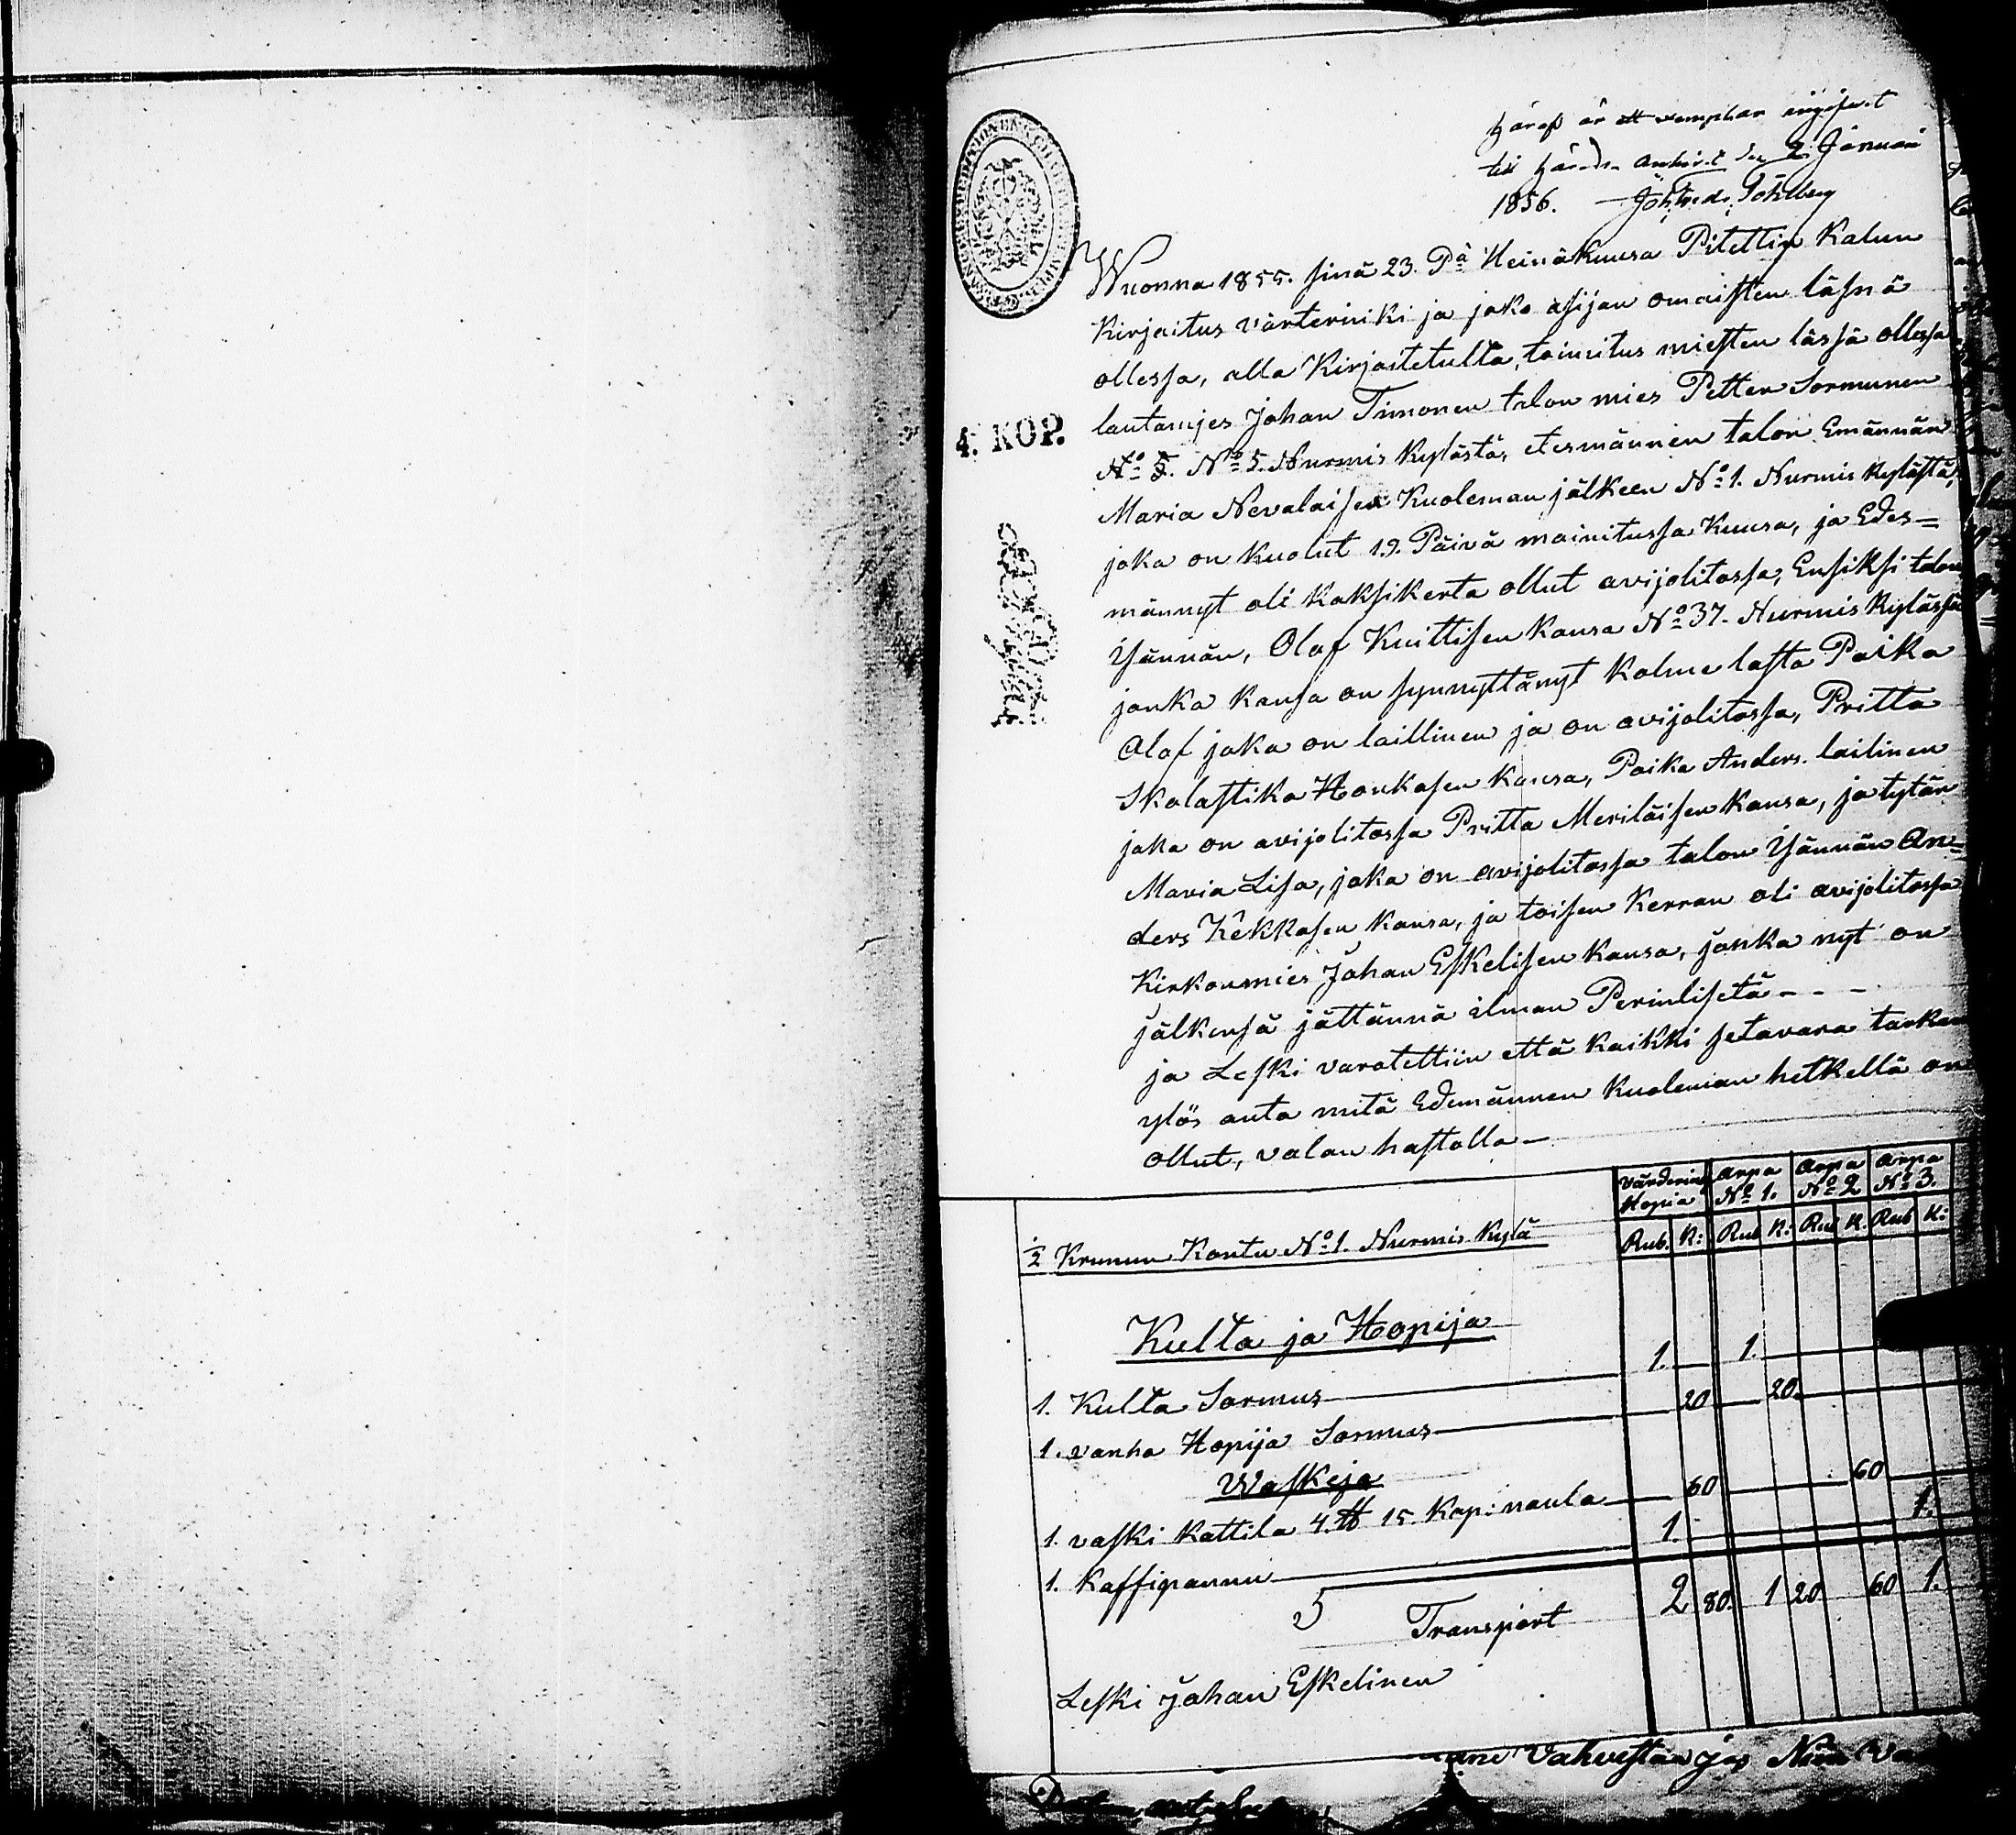 Häraf är ett exemplar ingifvit
till Härads Arkivet den 2 Januari
1856.
Wuonna 1855. sinä 23. Pä Heinäkuusa Pitettin Kalun
Kirjoitus värterinki ja jako asijan omaisten läsnä
ollessa, alla Kirjoitetulta, toimitus miesten lässä ollessa
lautamjes Johan Timonen talon mies Petter Sormunen
4. KOP.
N:o 5. Nurmis Kylästä, etesmännen talon Emännän
Maria Nevalaisen Kuoleman jälkeen N:o 1. Nurmis Kylästä,
joka on Kuolut 19. Päivä mainitussa Kuusa, ja Edes=
männyt oli Kaksikerta ollut avijolitossa, Ensiksi talon
Ysännän, Olof Kuittisen Kansa N:o 37. Nurmis Kylässä
jonka Kansa on synnyttänyt Kolme lasta Poika
Olof joka on laillinen ja on avijolitossa, Pritta
Skolastika Honkasen Kansa, Poika Anders. lailinen
joka on avijolitossa Pritta Meriläisen Kansa, ja tytär
Maria Lisa, joka on avijolitossa talon Ysännän An=
ders Kêkkosen Kansa, ja toisen Kerran oli avijolitossa
Kirkonmies Johan Eskelisen Kansa, jonka nyt on
jälkensä jättännä ilman Perinlisetä - - -
ja Leski varotettiin että Kaikki setavara tarkan
ylös anta mitä Edemännen Kuoleman hetkellä on
ollut, valan hastolla —
Värderin Hopia Arpa N:o 1. Arpa N:o 2 Arpa N:o 3.
1/2 Krunun Kontu N:o 1. Nurmis Kylä Rub. K: Rub K: Rub K. Rub K:
Kulta ja Hopija
1. Kulta Sormus 1. 1.
1. vanha Hopija Sormus 20 20.
Waskeja
1. vaski Kattila 4. ℔ 15. Kop: naula 60 60
1. Kaffipannu 1. 1.
Transport 2 80. 1 20. 60 1.
Leski Johan Eskelinen
Vahvistan